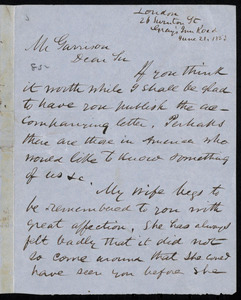 London
26 Winton St
Gray's Inn Road
June 21, 186
Mr Garrison
Dear Sir
If you think
it worth while I shall be glad
to have you publish the ac-
companying letter. Perhaps
there are those in America who
would like to know something
of us &c.
My Wife begs to
be remembered to you with
great affection, She has always
felt badly that it did not
so come around that she could
have seen you before she